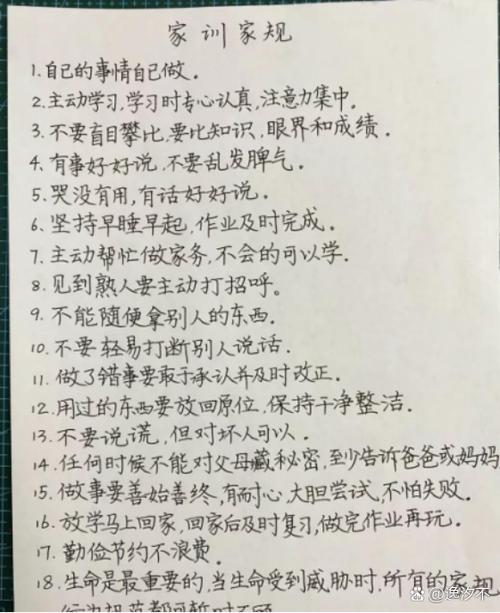 家训家规
1.自己的事情自己做.
2.主动学习,学习时专心认真,注意力集中.
3.不要盲目攀比,要比知识,眼界和成绩.
4.有事好好说,不要乱发脾气.
5.哭没有用,有话好好说.
6.坚持早睡早起,作业及时完成.
7.主动帮忙做家务,不会的可以学.
8.见到熟人要主动打招呼。
9.不能随便拿别人的东西.
10.不要轻易打断别人说话.
11.做了错事要敢于承认并及时改正.
12.用过的东西要放回原位,保持干净整洁.
13.不要说谎,但对坏人可以.
14.任何时候不能对父母藏秘密,至少告诉爸爸或妈妈
15.做事要善始善终,有耐心,大胆尝试,不怕失败.
16.放学马上回家,回家后及时复习,做完作业再玩.
17.勤俭节约不浪费.
18.生命是最重要的,当生命受到威胁时,所有的家规